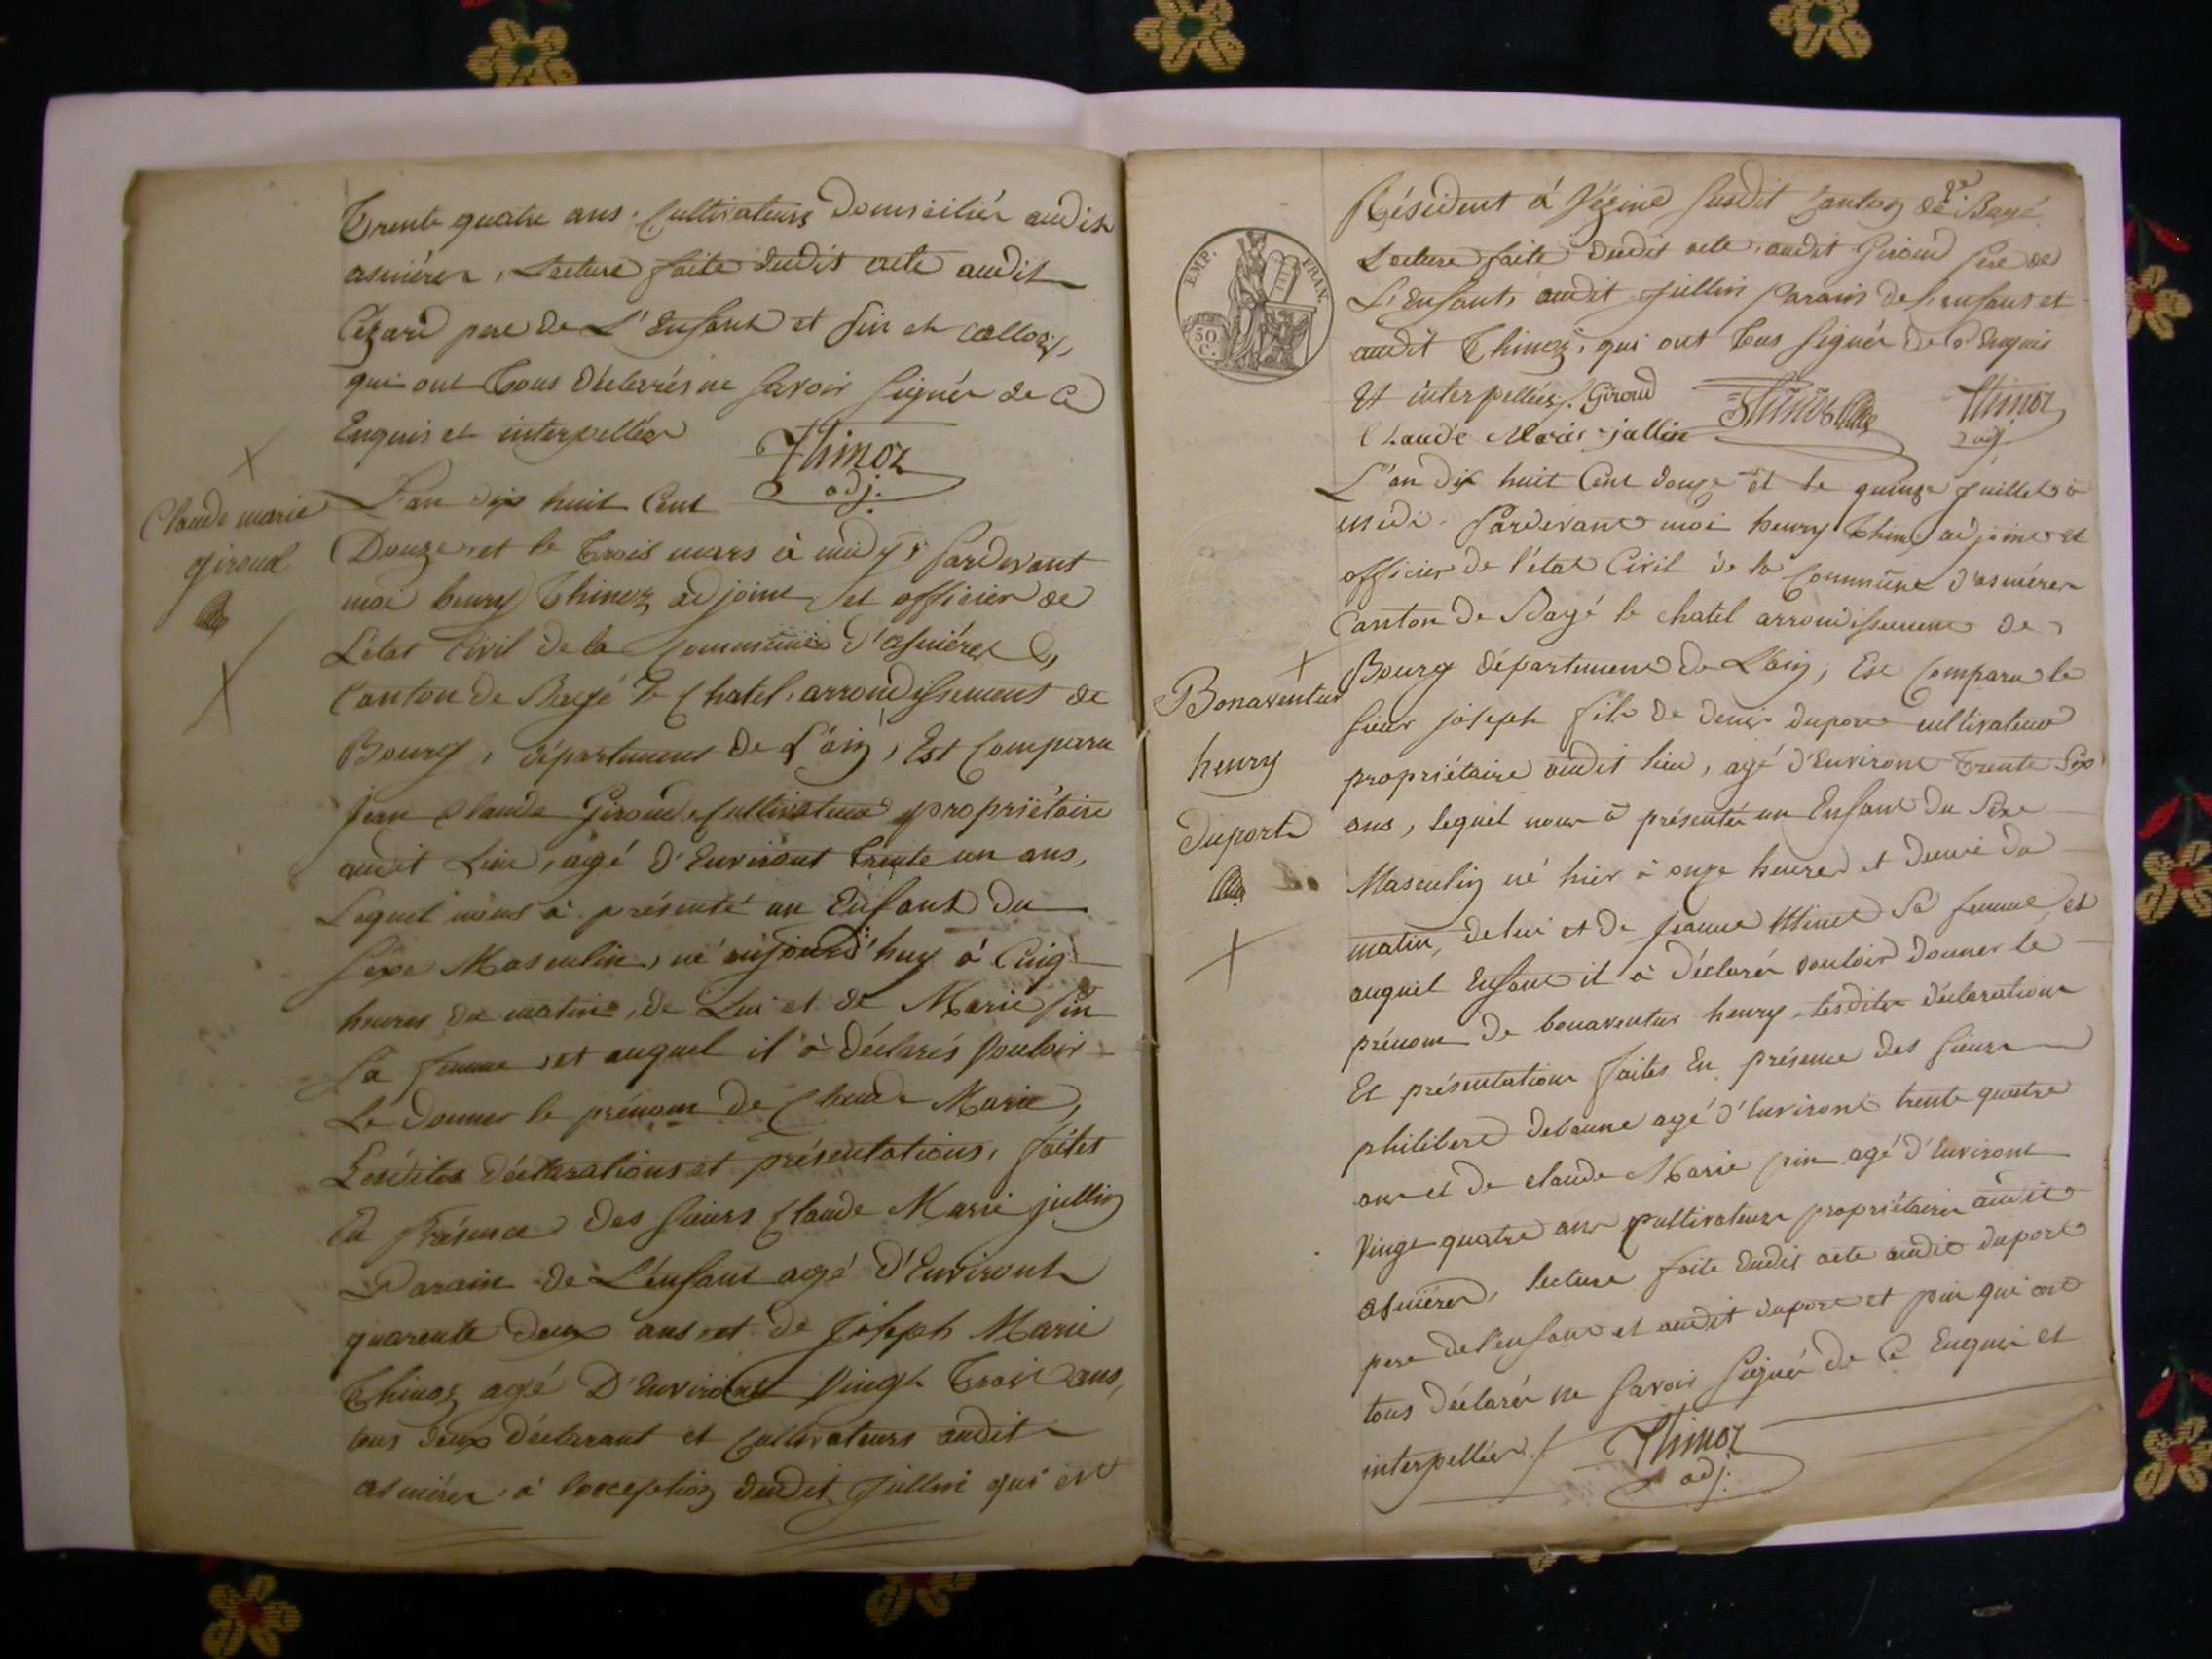 Trente quatre ans. Cultivateurs Domiciliér audit
asniéres, Lecture faite dudit acte audit
Cézard pere de L'Enfant et Pin et
qui ont Tous déclarés ne Savoir Signér de Ce
Enquis et interpellér
Thimoz
adj.
Claude marie
giroud
L'an dix huit Cent
Douze et le Trois mars à midy, Pardevant
moi henry Thimoz adjoint et officier de
L'état Civil de la Commune d'asniéres
Canton de Bagé le Chatel, arrondissement de
Bourg, département de L'ain, Est Comparu
jean Claude Giroud Cultivateur propriétaire
audit Lieu, agé d'Environt trente un ans,
Lequel nous à présenté un Enfant du
Sexe Masculin, né aujourd'huy à Cinq
heures du matin, de Lui et de Marie Pin
Sa femme et auquel il à déclarés Vouloir
Le donner le prénom de Claude Marie,
Lesdites déclarations et présentations, faites
En Présence des Sieurs Claude Marie jullin
Parain de L'énfant agé d'Environt
quarente deux ans et de Joseph Marie
Thimoz agé D'Environt Vingt Trois ans,
tous deux déclarant et Cultivateurs audit
asniéres à l'exception dudit Jullin qui est
EMP. FRAN.
50 C.
Résident à Vézine Susdit Canton de Bagé
Lecture faite dudit acte, audit Giroud Pere de
L'Enfant, audit jullin Parain de l'enfant et
audit Thimoz, qui ont tous Signér de Ce Enquis
Et interpellées Giroud
Claude Marie jullin
Thimoz
Thimoz
adj.
L'an dix huit Cent douze et le quinze juillet à
midi. Pardevant moi henry Thimoz adjoint et
officier de l'état Civil de la Commune d'asniéres
Canton de Bagé le chatel arrondissement de
Bourg département de L'ain, Est Comparu le
Bonaventur
henry
Duport
Sieur joseph fils de denis duport cultivateur
propriétaire audit lieu, agé d'Environt Trente Six
ans, lequel nous à présentér un Enfant du Sexe
Masculin né hier à onze heures et demie du
matin, de lui et de jeanne Sa femme, et
auquel Enfant il à déclarér vouloir donner le
prénom de bonaventur henry, lesdites déclarations
Et présentations faites En présence des Sieurs
philibert debaune agé d'Environt trente quatre
ans et de claude Marie pin agé d'Environt
Vingt quatre ans Cultivateurs propriétaires audit
asniéres, lecture faite dudit acte audit duport
pere de l'enfant et audit duport et pin qui ont
tous déclarér ne Savoir Signér de Ce Enquis et
interpellées./.
Thimoz
adj.